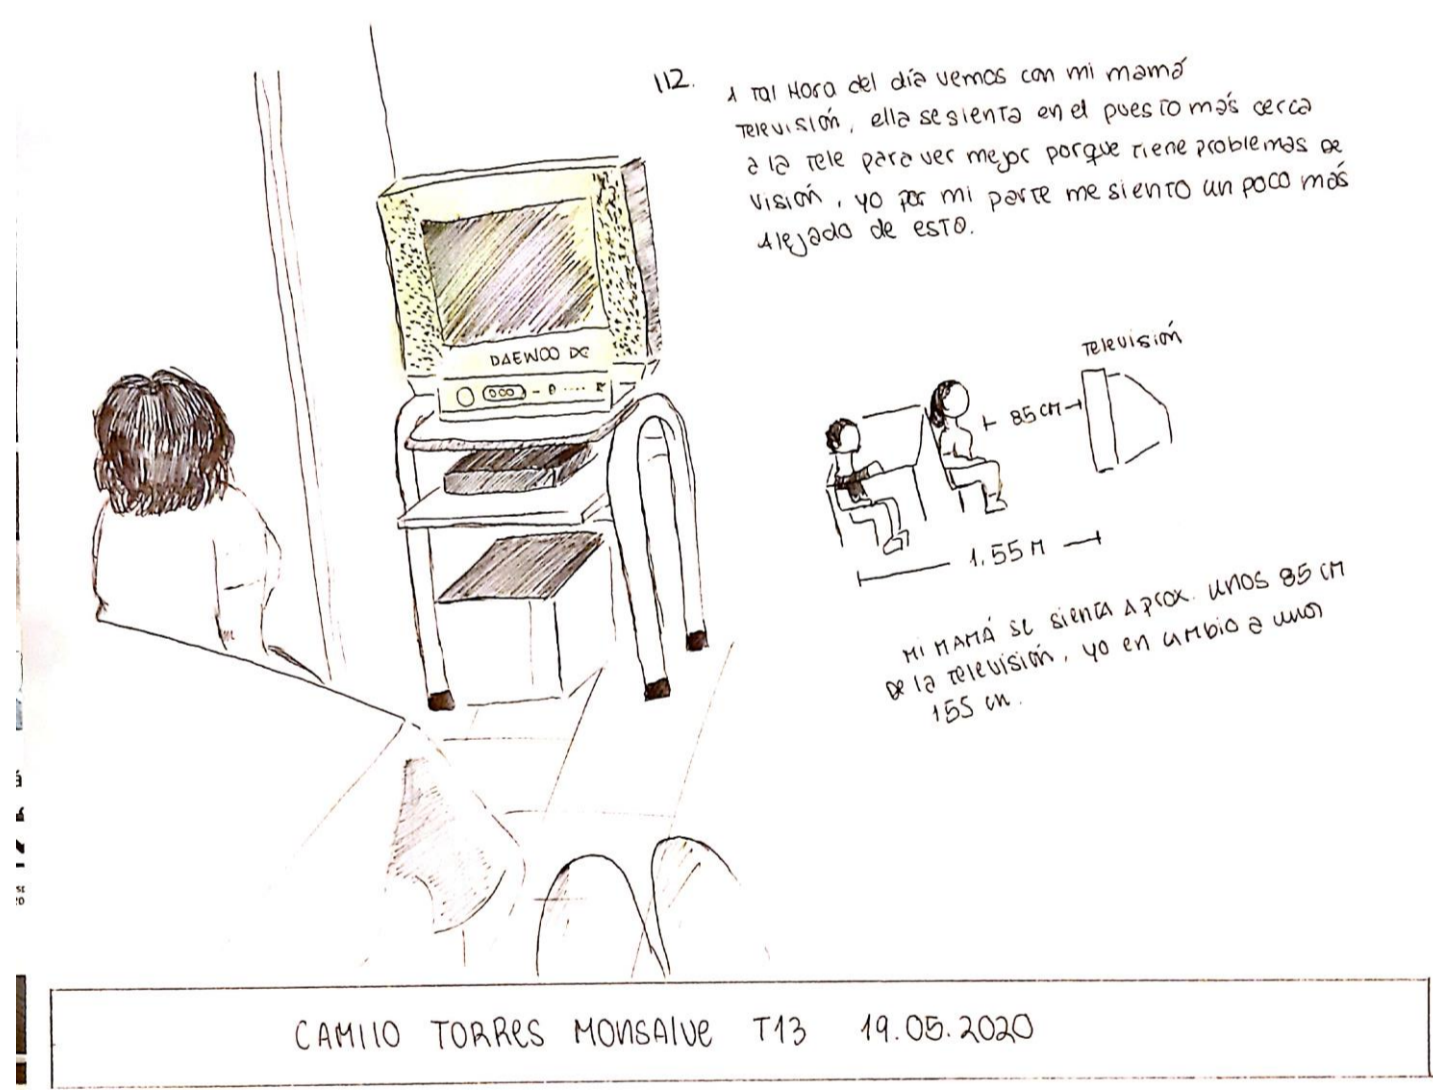 112.
A tal Hora del día vemos con mi mamá
Televisión, ella se sienta en el puesto más cerca
a la tele para ver mejor porque tiene problemas de
visión, yo por mi parte me siento un poco más
Alejado de esto.
DAEWOO
Televisión
85 cm
1.55 M
MI MAMÁ se sienta Aprox. unos 85 cm
De la televisión, yo en cambio a unos
155 cm.
CAMILO TORRES MONSALVE T13 19.05.2020